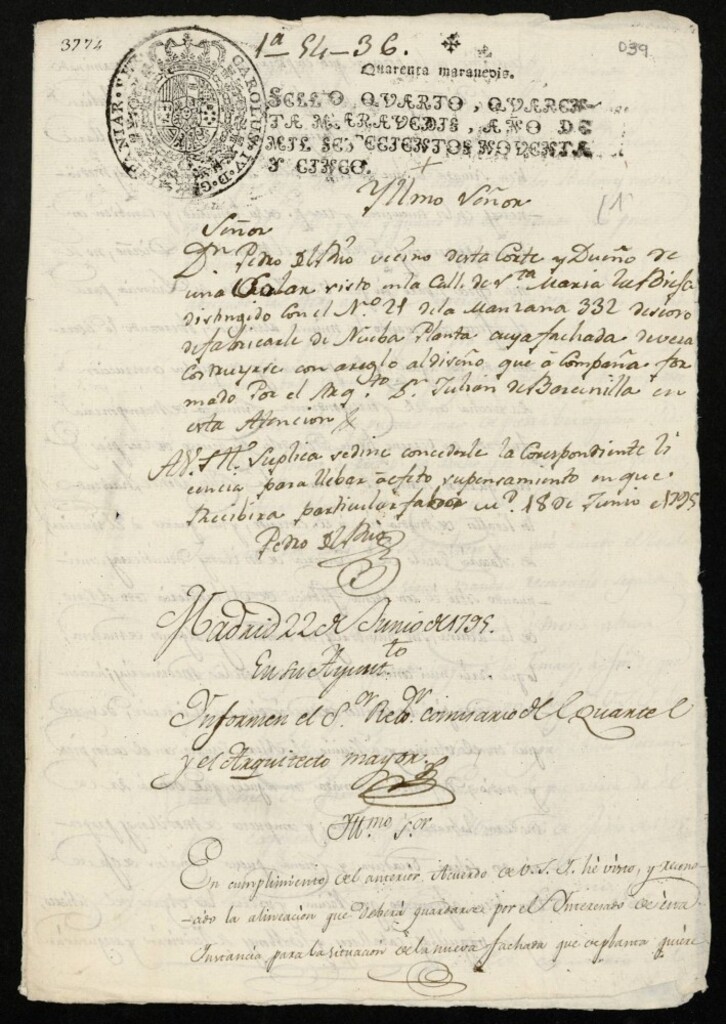 3774
1ª 54-36.
D39
Quarenta maravedis.
CAROLUS IV D. G. HISPANIAR. REX
SELLO QVARTO, QVAREN-
TA MARAVEDIS, AÑO DE
MIL SETECIENTOS NOVENTA
Y CINCO.
Yllmo Señor
Señor
Dn. Pedro del Rio vecino desta Corte y Dueño de
una Solar visto en la Calle de Sta Maria la
distingido Con el No 21 dela Manzana 332 deseoso
defabricarle de Nueba Planta cuya fachada devera
Costruyrse con areglo al diseño que á Compaña for
mado Por el Arqto Dn. Julian de Barcenilla en
esta Atencion
A V. S. Yll. Suplica sedine concederle la Corespondiente li
cencia para llebar á efeto supensamiento en que
Recibira particular fabor M. 18 de Junio de 1795
Pedro del Rio
Madrid 22 de Junio de 1795.
En su Ayuntto
Informen el Sor Rexor comisario del Quartel
y el Arquitecto mayor.
Illmo Sor
En cumplimiento del anterior Acuerdo de V. S. I. hé visto, y recono
-cido la alineacion que deberá guardarse por el Interesado de esta
Instancia para la situacion de la nueva fachada que de planta quiere